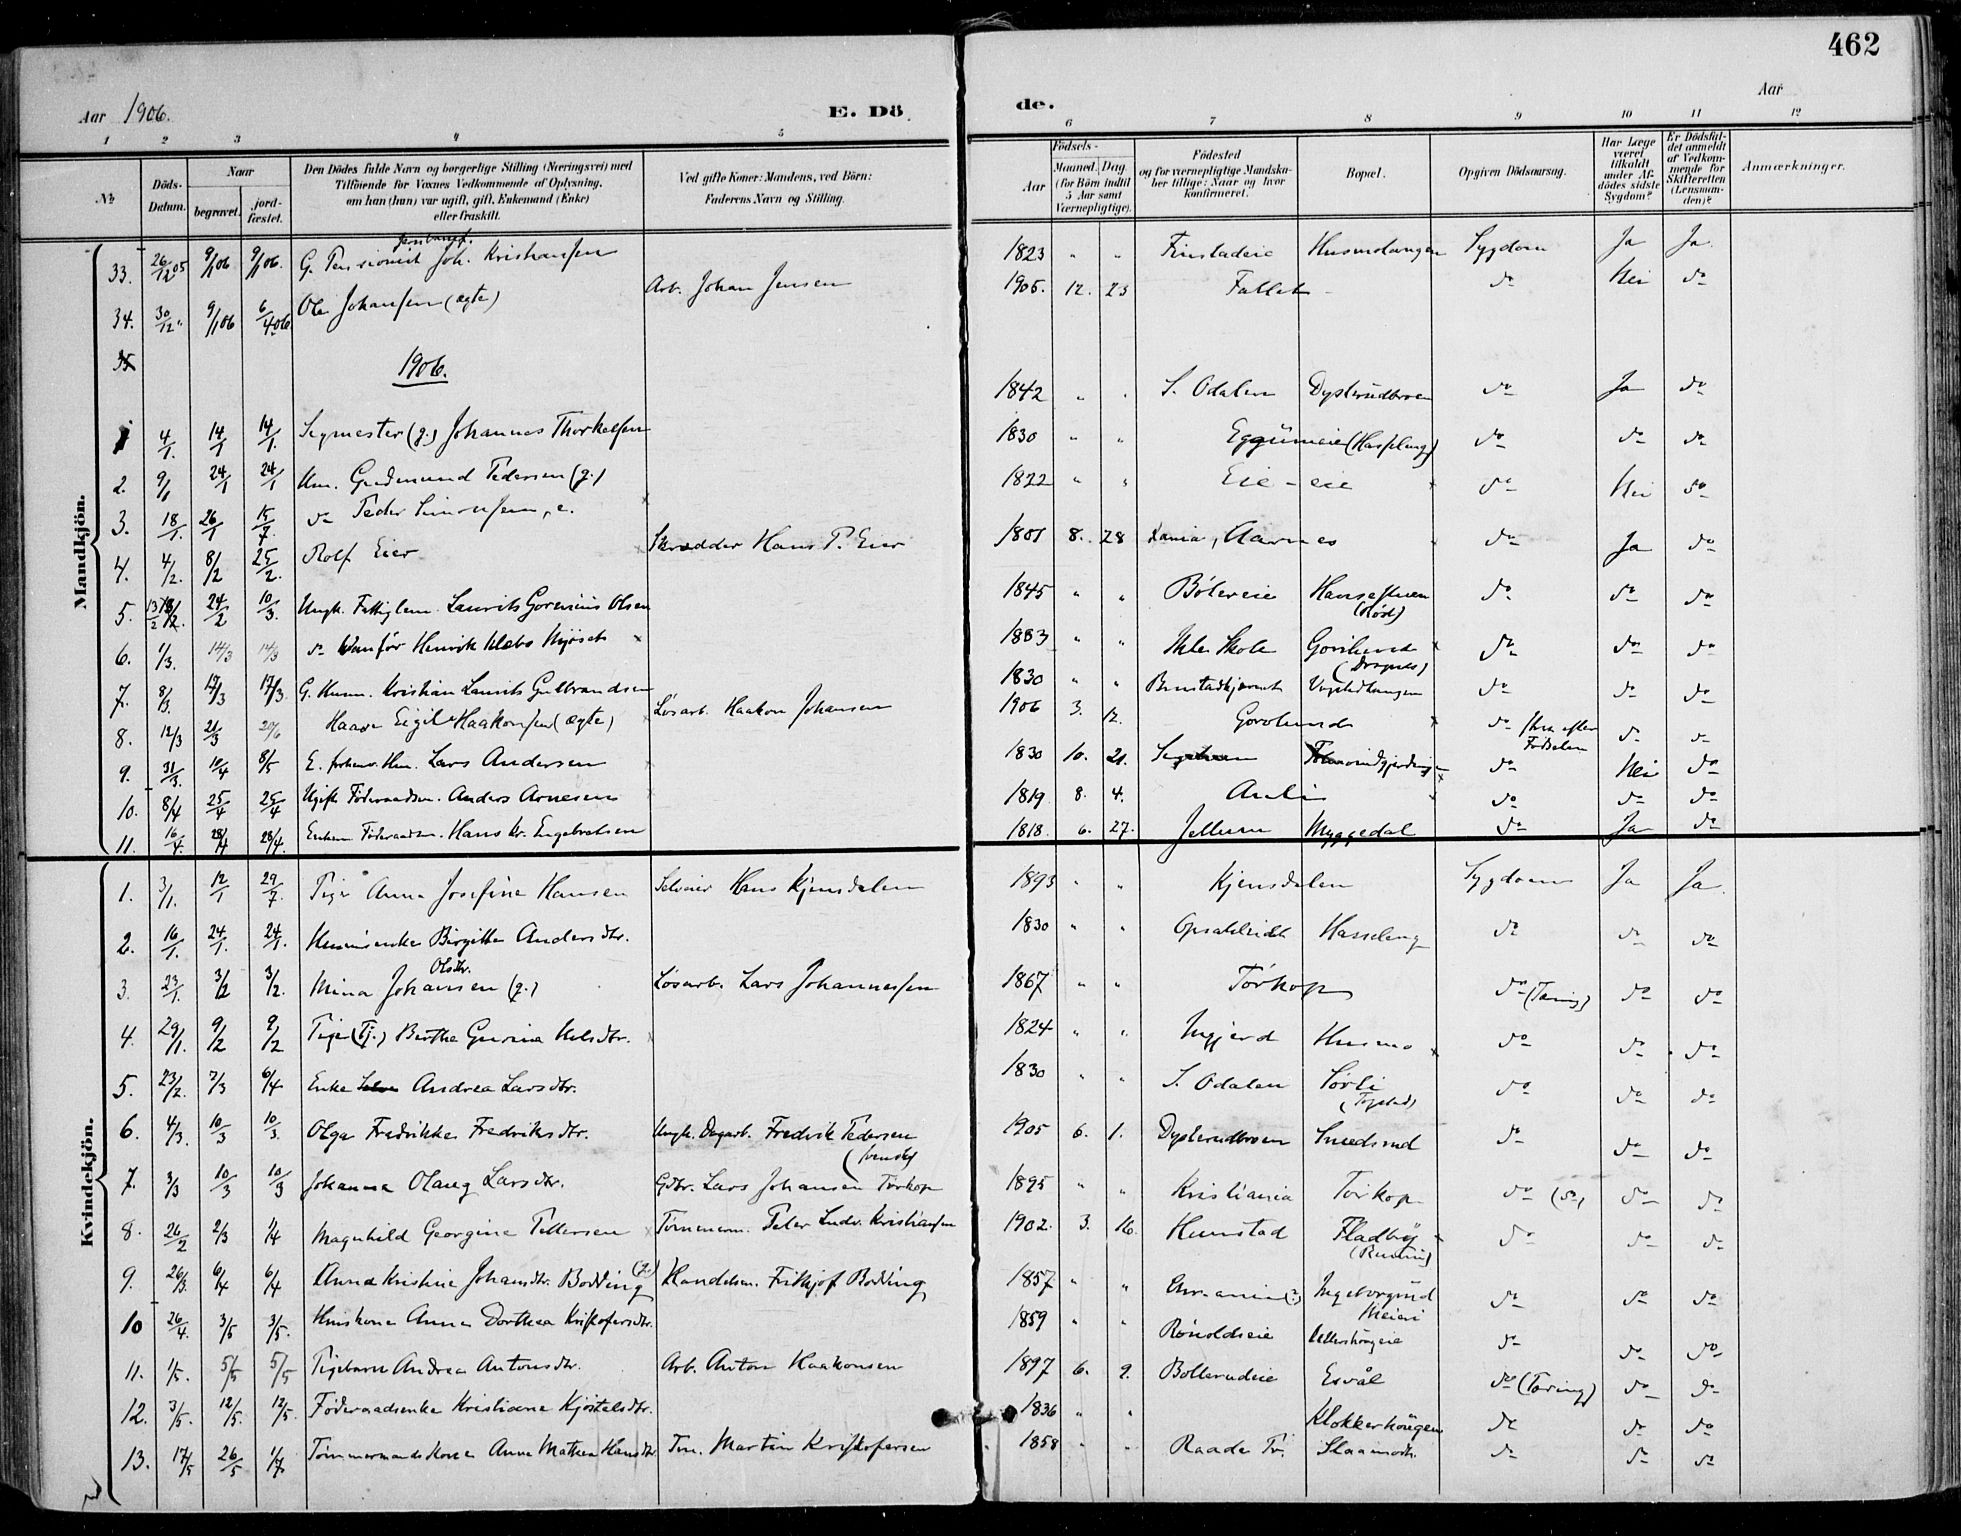 462
Aar 1906.
E. Dö de.
Aar
1 2 3 4 5 6 7 8 9 10 11 12
№ Döds-Datum. Naar begravet. jord-fæstet. Den Dödes fulde Navn og borgerlige Stilling (Næringsvei) med Tilföiende for Voxnes Vedkommende af Oplysning, om han (hun) var ugift, gift, Enkemand (Enke) eller fraskilt. Ved gifte Koner: Mandens, ved Börn: Faderens Navn og Stilling. Aar Födsels- Maaned. Dag. (for Börn indtil 5 Aar samt Værnepligtige). Födested og for værnepligtige Mandskaber tillige: Naar og hvor konfirmeret. Bopæl. Opgiven Dödsaarsag. Har Læge været tilkaldt under Afdödes sidste Sygdom? Er Dödsfaldet anmeldt af Vedkommende for Skifteretten (Lensmanden)? Anmærkninger.
Mandkjön.
33. 26/12 05 9/1 06 9/1 06. G. Pensionist Joh. Kristiansen 1823 " " Finstadeie Husmolangen Sygdom Ja Ja.
34. 30/12 " 9/1 06 6/4 06 Ole Johansen (ægte) Arb. Johan Jensen 1905. 12. 23 Fallet do Nei do
35
1906.
1 4/1. 14/1 14/1. Sagmester (g.) Johannes Thorkelsen 1842 " " S. Odalen Dysterudbroen do Ja do
2. 9/1 24/1 24/1 Hm. Gudmund Pedersen (g.) 1830 " " Eggumeie (Hasleng) do do do
3. 18/1. 26/1 15/7. do Peder Simonsen, e. 1822 " " Eie-eie do Nei do
4. 4/2. 8/2 25/2. Rolf Eier Skrædder Hans P. Eier 1801 8. 28 Aarnes do Ja do
5. 13/2 24/2 10/3. Ungk. Fattiglem. Laurits Gorenius Olsen 1845 " " Bölereie Hansestuen (Röd) do do do
6. 1/3. 14/3 14/3 do Vanför Henrik Klebo Mjöset 1883 " " Skole do do do
7. 8/3 19/3 17/3. G. Husm. Kristian Laurits Gulbrandsen 1830 " " Brustadkjærnet do do do
8. 12/3 21/3 20/6 Haave Eigil Haakonsen (ægte) Lösarb. Haakon Johansen 1906 3. 12. Gorolund do strax efter Fødselen do do
9. 31/3. 10/4 8/5 E. forhenv. Hm. Lars Andersen 1830 10. 21. do Nei do
10. 8/4 25/4 25/4 Ugift Föderaadsm. Anders Arnesen 1819 8. 4. Aulie do do do
11. 16/4. 28/4 28/4. Enkem. Föderaadsm. Hans Kr. Engebretsen 1818. 6. 27. Jellum Myggedal do Ja do
Kvindekjön.
1. 3/1. 12/1 29/7. Pige Anna Josefine Hansen Selveier Hans Kjensdalen 1893 " " Kjensdalen Sygdom Ja Ja.
2. 16/1. 24/1. 24/1. Husmsenke Birgitte Andersdtr. 1830 " " Opsahleidet Hasseleng do do do
3. 23/1. 3/2 3/2. Mina Johansen Olsdtr. (g.) Lösarb. Lars Johannessen 1867 " " Törkop do (Tæring) do do
4. 29/1. 9/2 9/2 Pige (Tj.) Berthe Gurina Nelsdtr. 1824 " " Ingjerd Husmo do do do
5. 23/2. 7/3 6/4 Enke Andrea Larsdtr. 1830 " " S. Odalen Sörli (Fogstad) do do do
6. 4/3. 10/3 10/3. Olga Fredrikke Fredriksdtr. Ungk. Dagarb. Fredrik Pedersen (svensk) 1905 6. 1. Dysterudbroen Smedsrud do do do
7. 3/3 10/3 10/3 Johanna Olaug Larsdtr. Gdbr. Lars Johansen Törkop 1895 " " Kristiania Törkop do (do) do do
8. 26/2 2/3 1/4 Magnhild Georgine Pettersen Tömmerm. Peter Ludv. Kristiansen 1902. 3. 16. Hemstad Fladby do do do
9. 26/3. 6/4 6/4 Anna Kristine Johansdtr. Bodding (g.) Handelsm. Frithjof Bodding 1857 " " Chr.ania (?) Ingeborgrud Meieri do do do
10 26/4. 3/5 3/5. Huuskone Anna Dorthea Kristofersdtr. 1859 " " Rönoldseie Ullershougeie do do do
11. 1/5. 5/5 5/5 Pigebarn Andrea Antonsdtr. Arb. Anton Haakonsen 1897 6. 9. Bollerudeie Esvål do (Tæring) do do
12. 3/5. 12/5. 12/5. Föderaadsenke Kristiane Kjöstelsdtr. 1836 " " Klokkerhougen do do do
13. 17/5 26/5 1/7 Tömmermandskone Anne Mathea Hansdtr Tm. Martin Kristofersen 1858 " " Raade Pr. Slaamodtr. do do do